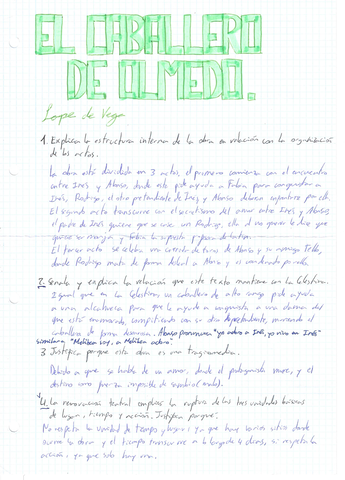 EL CABALLERO
DE OLMEDO.
Lope de Vega
1. Explica la estructura interna de la obra en relación con la organización
de los actos.
La obra está dividida en 3 actos, el primero comienza con el encuentro
entre Inés y Alonso, donde este pide ayuda a Fabia para conquistar a
Inés. Rodrigo, el otro pretendiente de Inés y Alonso deberán por ella.
El segundo acto transcurre con el secretismo del amor entre Inés y Alonso,
el padre de Inés quiere que se case con Rodrigo, ella al no querer le dice que
quiere ser monja y Fabia
El tercer acto se celebra con corrida de toros de Alonso y su amigo Tello,
donde Rodrigo mata de forma a Alonso y es
2. Señala y explica la relación que este texto mantiene con la Celestina.
Igual que en la Celestina un caballero de alto rango pide ayuda
a una alcahueta para que le ayude a conquistar a una dama del
que está enamorado, con otro pretendiente, muriendo el
caballero de forma Alonso pronuncia "yo adoro a Inés, yo vivo en Inés"
similar a "Melibeo soy, a Melibea adoro".
3 Justifica porque esta obra es una tragicomedia.
Debido a que se habla de un amor, donde el protagonista muere, y el
destino como fuerza imposible de
4. La renovación teatral implica la ruptura de las tres unidades básicas
de lugar, tiempo y acción. Justifica porque.
No respeta la unidad de tiempo y lugar, ya que hay varios sitios donde
ocurre la obra y el tiempo transcurre a lo largo de días, si respeta la
acción, ya que solo hay una.